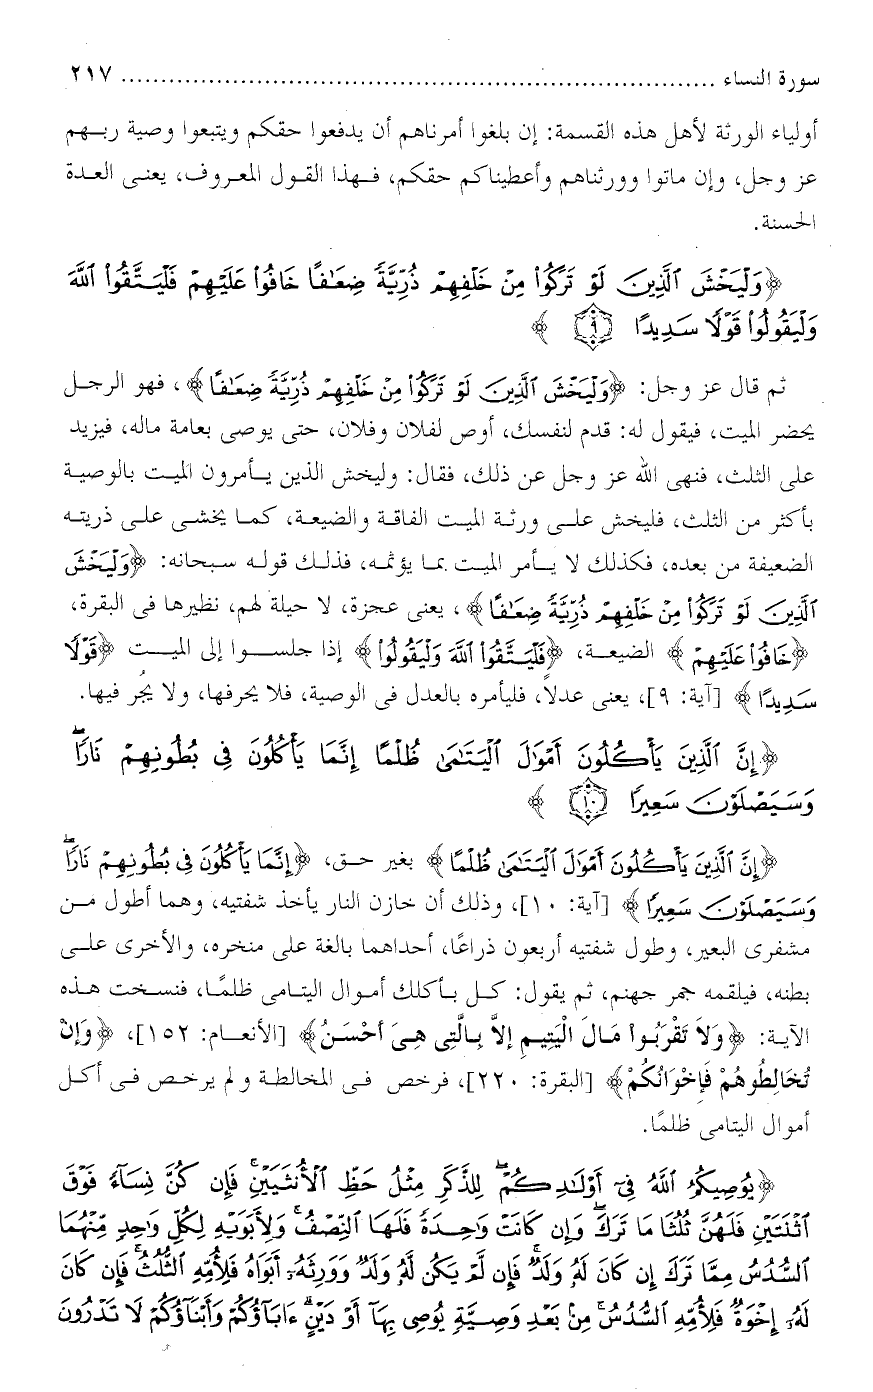 سورة النساء ........................................................................... ٢١٧
أولياء الورثة لأهل هذه القسمة: إن بلغوا أمرناهم أن يدفعوا حقكم ويتبعوا وصية ربهم
عز وجل، وإن ماتوا وورثناهم وأعطيناكم حقكم، فهذا القول المعروف، يعنى العدة
الحسنة.
﴿وَلْيَخْشَ ٱلَّذِينَ لَوْ تَرَكُوا۟ مِنْ خَلْفِهِمْ ذُرِّيَّةً ضِعَٰفًا خَافُوا۟ عَلَيْهِمْ فَلْيَتَّقُوا۟ ٱللَّهَ
وَلْيَقُولُوا۟ قَوْلًا سَدِيدًا ٩﴾
ثم قال عز وجل: ﴿وَلْيَخْشَ ٱلَّذِينَ لَوْ تَرَكُوا۟ مِنْ خَلْفِهِمْ ذُرِّيَّةً ضِعَٰفًا﴾، فهو الرجل
يحضر الميت، فيقول له: قدم لنفسك، أوص لفلان وفلان، حتى يوصى بعامة ماله، فيزيد
على الثلث، فنهى الله عز وجل عن ذلك، فقال: وليخش الذين يأمرون الميت بالوصية
بأكثر من الثلث، فليخش على ورثة الميت الفاقة والضيعة، كما يخشى على ذريته
الضعيفة من بعده، فكذلك لا يأمر الميت بما يؤثمه، فذلك قوله سبحانه: ﴿وَلْيَخْشَ
ٱلَّذِينَ لَوْ تَرَكُوا۟ مِنْ خَلْفِهِمْ ذُرِّيَّةً ضِعَٰفًا﴾، يعنى عجزة، لا حيلة لهم، نظيرها فى البقرة،
﴿خَافُوا۟ عَلَيْهِمْ﴾ الضيعة، ﴿فَلْيَتَّقُوا۟ ٱللَّهَ وَلْيَقُولُوا۟﴾ إذا جلسوا إلى الميت ﴿قَوْلًا
سَدِيدًا﴾ [آية: ٩]، يعنى عدلاً، فليأمره بالعدل فى الوصية، فلا يحرفها، ولا يجُر فيها.
﴿إِنَّ ٱلَّذِينَ يَأْكُلُونَ أَمْوَٰلَ ٱلْيَتَٰمَىٰ ظُلْمًا إِنَّمَا يَأْكُلُونَ فِى بُطُونِهِمْ نَارًا ۖ
وَسَيَصْلَوْنَ سَعِيرًا ١٠﴾
﴿إِنَّ ٱلَّذِينَ يَأْكُلُونَ أَمْوَٰلَ ٱلْيَتَٰمَىٰ ظُلْمًا﴾ بغير حق، ﴿إِنَّمَا يَأْكُلُونَ فِى بُطُونِهِمْ نَارًا ۖ
وَسَيَصْلَوْنَ سَعِيرًا﴾ [آية: ١٠]، وذلك أن خازن النار يأخذ شفتيه، وهما أطول من
مشفرى البعير، وطول شفتيه أربعون ذراعًا، أحداهما بالغة على منخره، والأخرى على
بطنه، فيلقمه جمر جهنم، ثم يقول: كل بأكلك أموال اليتامى ظلمًا، فنسخت هذه
الآية: ﴿وَلاَ تَقْرَبُواْ مَالَ الْيَتِيمِ إِلاَّ بِالَّتِى هِىَ أَحْسَنُ﴾ [الأنعام: ١٥٢]، ﴿وَإِنْ
تُخَالِطُوهُمْ فَإِخْوَانُكُمْ﴾ [البقرة: ٢٢٠]، فرخص فى المخالطة ولم يرخص فى أكل
أموال اليتامى ظلمًا.
﴿يُوصِيكُمُ ٱللَّهُ فِىٓ أَوْلَٰدِكُمْ ۖ لِلذَّكَرِ مِثْلُ حَظِّ ٱلْأُنثَيَيْنِ ۚ فَإِن كُنَّ نِسَآءً فَوْقَ
ٱثْنَتَيْنِ فَلَهُنَّ ثُلُثَا مَا تَرَكَ ۖ وَإِن كَانَتْ وَٰحِدَةً فَلَهَا ٱلنِّصْفُ ۚ وَلِأَبَوَيْهِ لِكُلِّ وَٰحِدٍ مِّنْهُمَا
ٱلسُّدُسُ مِمَّا تَرَكَ إِن كَانَ لَهُۥ وَلَدٌ ۚ فَإِن لَّمْ يَكُن لَّهُۥ وَلَدٌ وَوَرِثَهُۥٓ أَبَوَاهُ فَلِأُمِّهِ ٱلثُّلُثُ ۚ فَإِن كَانَ
لَهُۥٓ إِخْوَةٌ فَلِأُمِّهِ ٱلسُّدُسُ ۚ مِنۢ بَعْدِ وَصِيَّةٍ يُوصِى بِهَآ أَوْ دَيْنٍ ۗ ءَابَآؤُكُمْ وَأَبْنَآؤُكُمْ لَا تَدْرُونَ